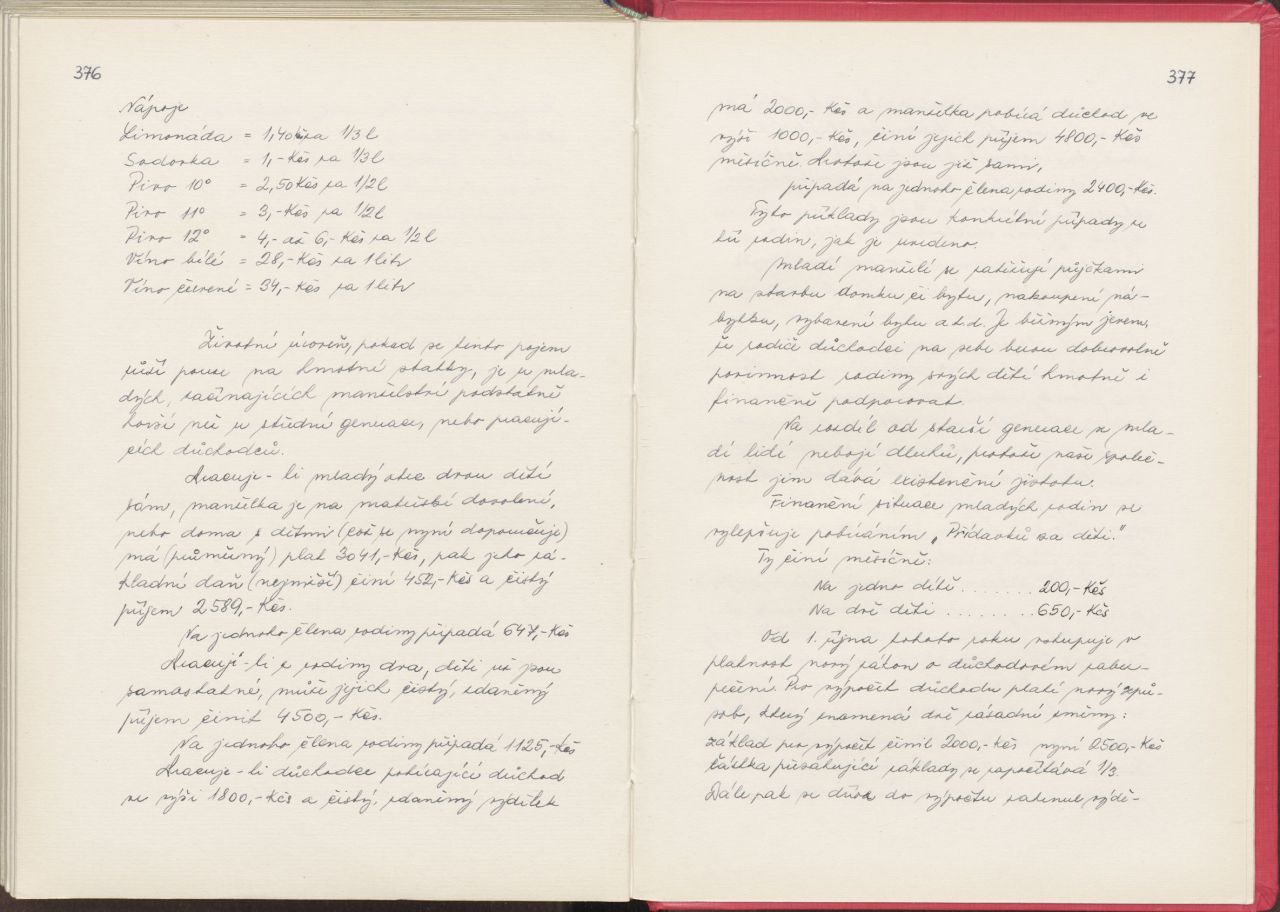 376
Nápoje
Limonáda = 1,40 Kčs za 1/3 l
Sodovka = 1,- Kčs za 1/3 l
Pivo 10° = 2,50 Kčs za 1/2 l
Pivo 11° = 3,- Kčs za 1/2 l
Pivo 12° = 4,- až 6,- Kčs za 1/2 l
Víno bílé = 28,- Kčs za 1 litr
Víno červené = 34,- Kčs za 1 litr
Životní úroveň, pokud se tento pojem
zúží pouze na hmotné statky, je u mla-
dých, začínajících manželství podstatně
horší než u střední generace, nebo pracují-
cích důchodců.
Pracuje-li mladý otec dvou dětí
sám, manželka je na mateřské dovolené,
nebo doma s dětmi (což se nyní doporučuje)
má (průměrný) plat 3041,- Kčs, pak jeho zá-
kladní daň (nejnižší) činí 452,- Kčs a čistý
příjem 2589,- Kčs.
Na jednoho člena rodiny připadá 647,- Kčs
Pracují-li z rodiny dva, děti už jsou
samostatné, může jejich čistý, zdaněný
příjem činit 4500,- Kčs.
Na jednoho člena rodiny připadá 1125,- Kčs
Pracuje-li důchodce pobírající důchod
ve výši 1800,- Kčs a čistý, zdaněný výdělek
377
má 2000,- Kčs a manželka pobírá důchod ve
výši 1000,- Kčs, činí jejich příjem 4800,- Kčs
měsíčně. Protože jsou již sami,
připadá na jednoho člena rodiny 2400,- Kčs.
Tyto příklady jsou konkrétní případy ze
tří rodin, jak je uvedeno.
Mladí manželé se zatěžují půjčkami
na stavbu domku či bytu, nakoupení ná-
bytku, vybavení bytu a.t.d. Je běžným jevem,
že rodiče důchodci na sebe berou dobrovolně
povinnost rodiny svých dětí hmotně i
finančně podporovat.
Na rozdíl od starší generace se mla-
dí lidé nebojí dluhů, protože naše společ-
nost jim dává existenční jistotu.
Finanční situace mladých rodin se
vylepšuje pobíráním „Přídavků na děti."
Ty činí měsíčně:
Na jedno dítě ....... 200,- Kčs
Na dvě děti ........ 650,- Kčs
Od 1. října tohoto roku vstupuje v
platnost nový zákon o důchodovém zabez-
pečení. Pro výpočet důchodu platí nový způ-
sob, který znamená dvě zásadní změny:
základ pro výpočet činil 2000,- Kčs nyní 2500,- Kčs
částka přesahující základy se započítává 1/3.
Dále pak se dříve do výpočtu zahrnul výdě-